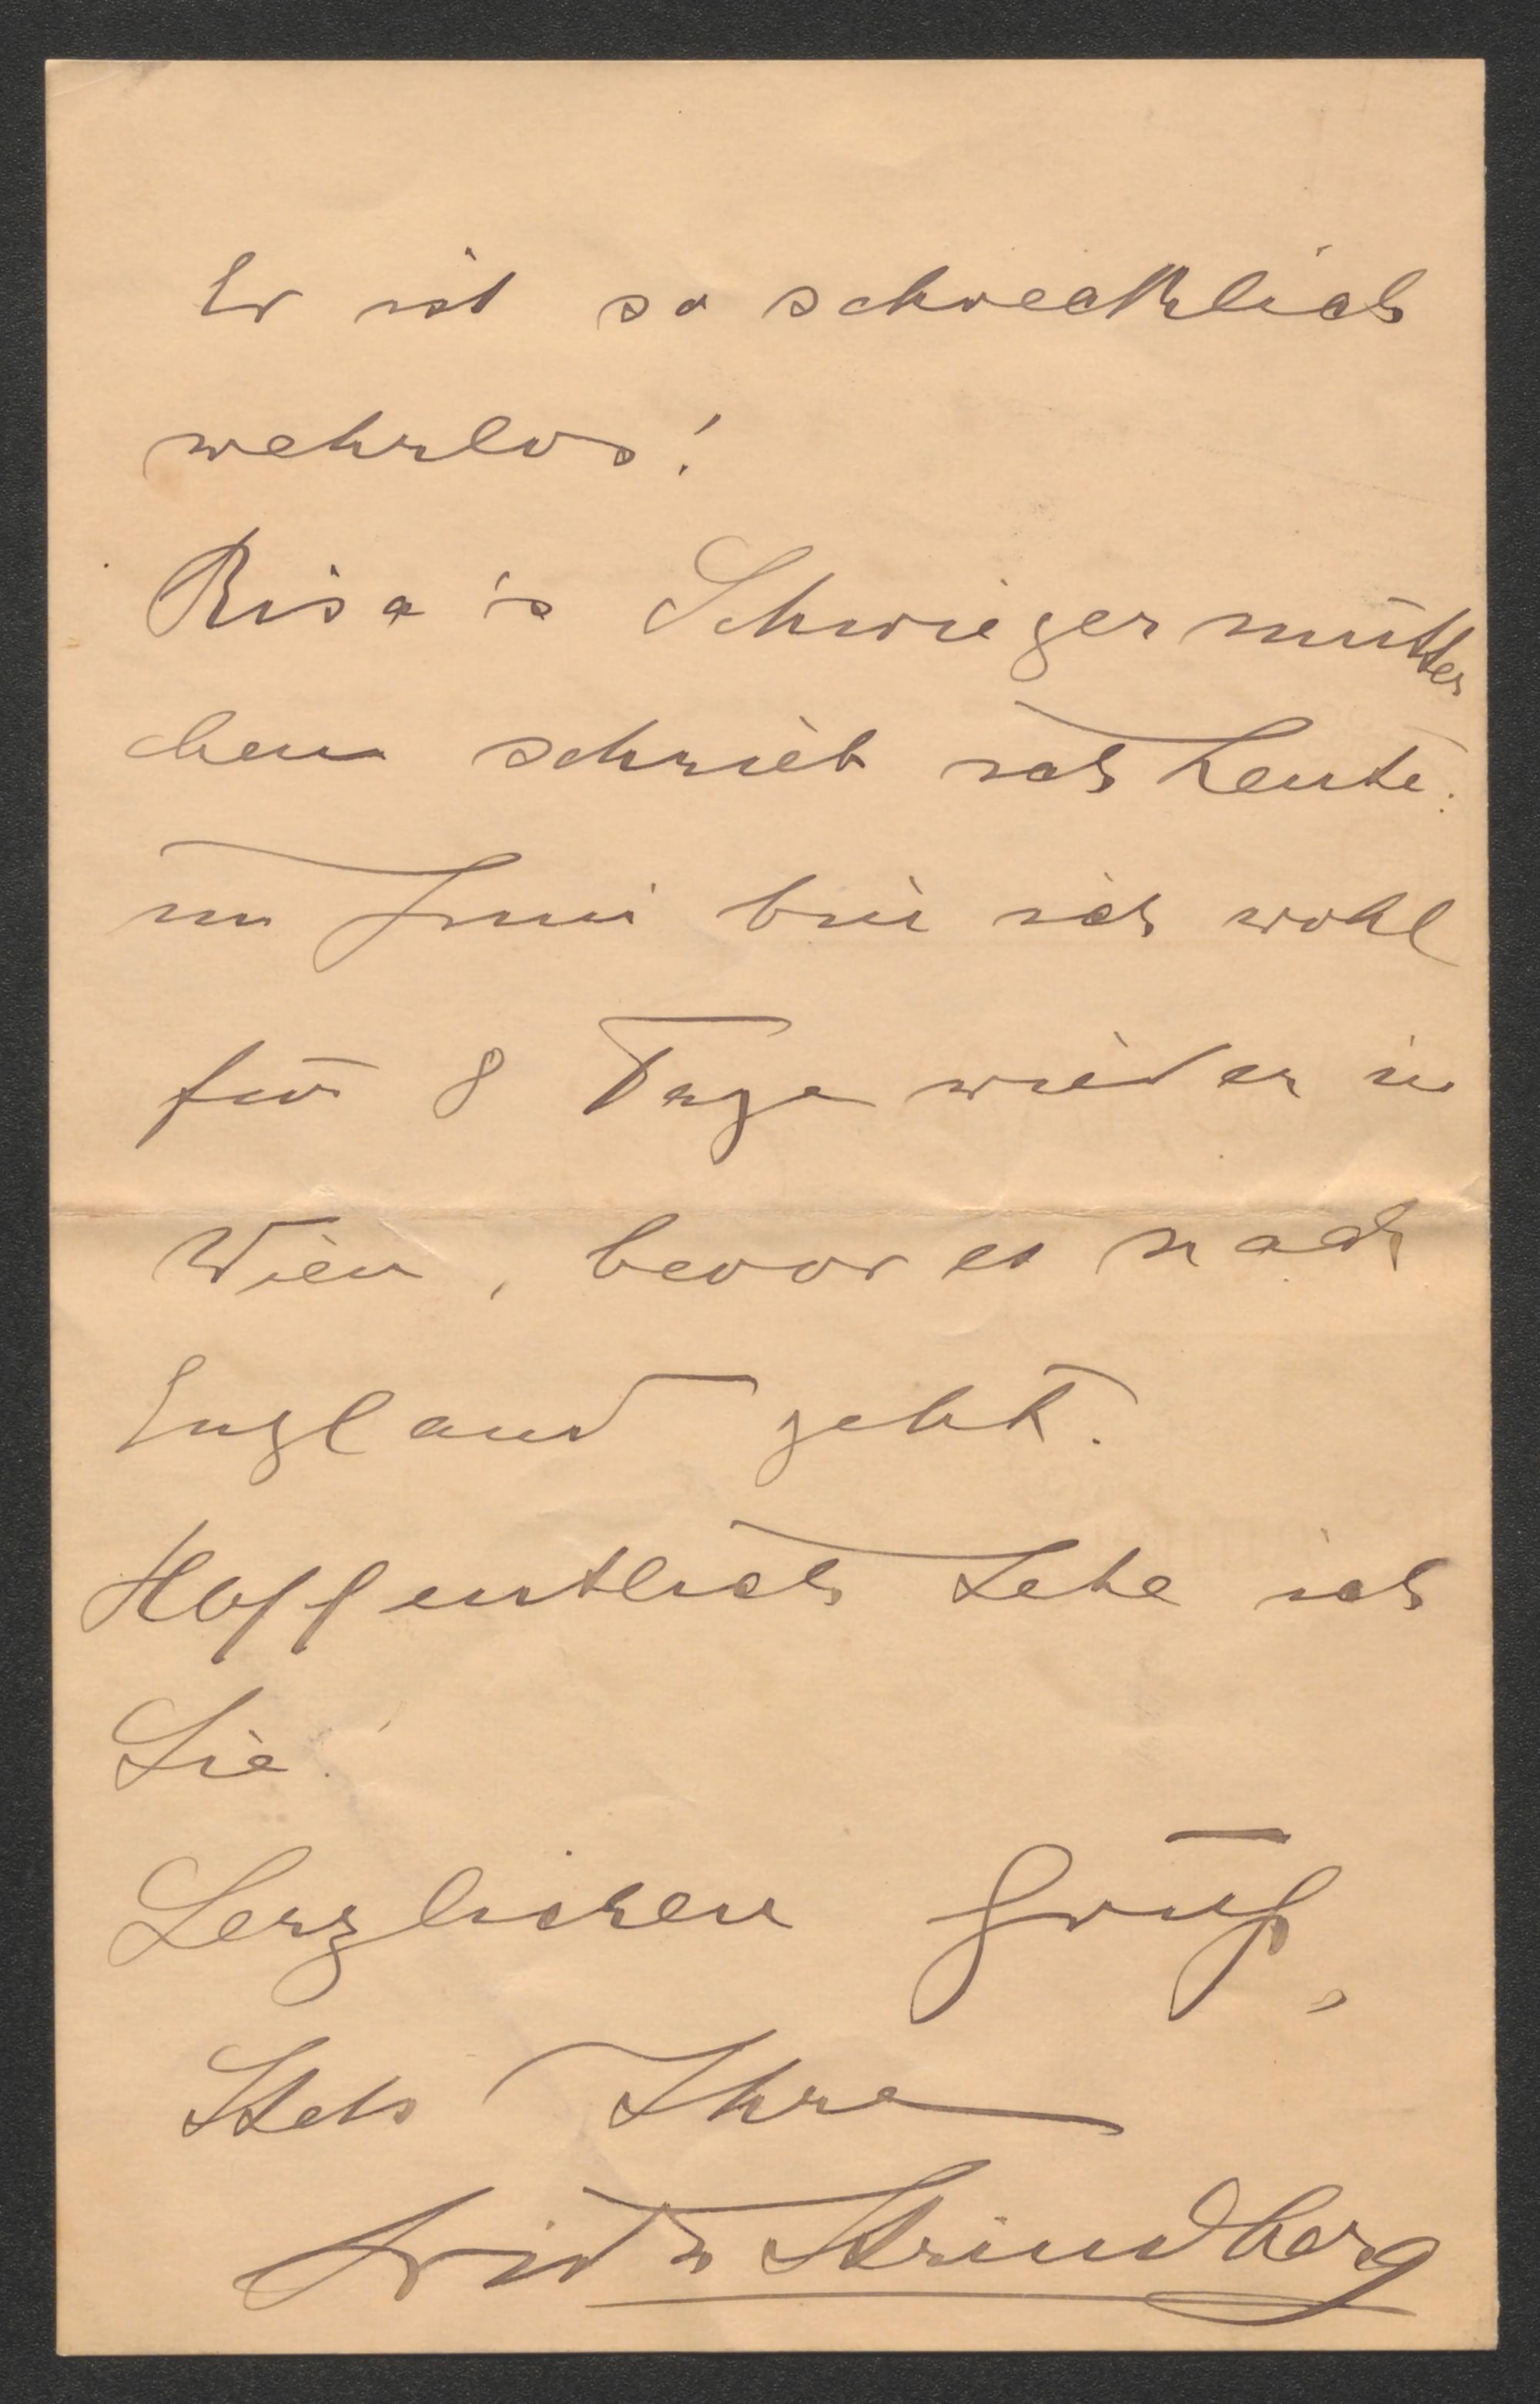 Er ist so schrecklich
wehrlos!
Risa's Schwiegermütter
chen schrieb ich heute.
im Juni bin ich wohl
für 8 Tage wieder in
Wien, bevor es nach
England geht.
Hoffentlich sehe ich
Sie!
Herzlichen Gruß,
Stets Ihre
Frida Strindberg